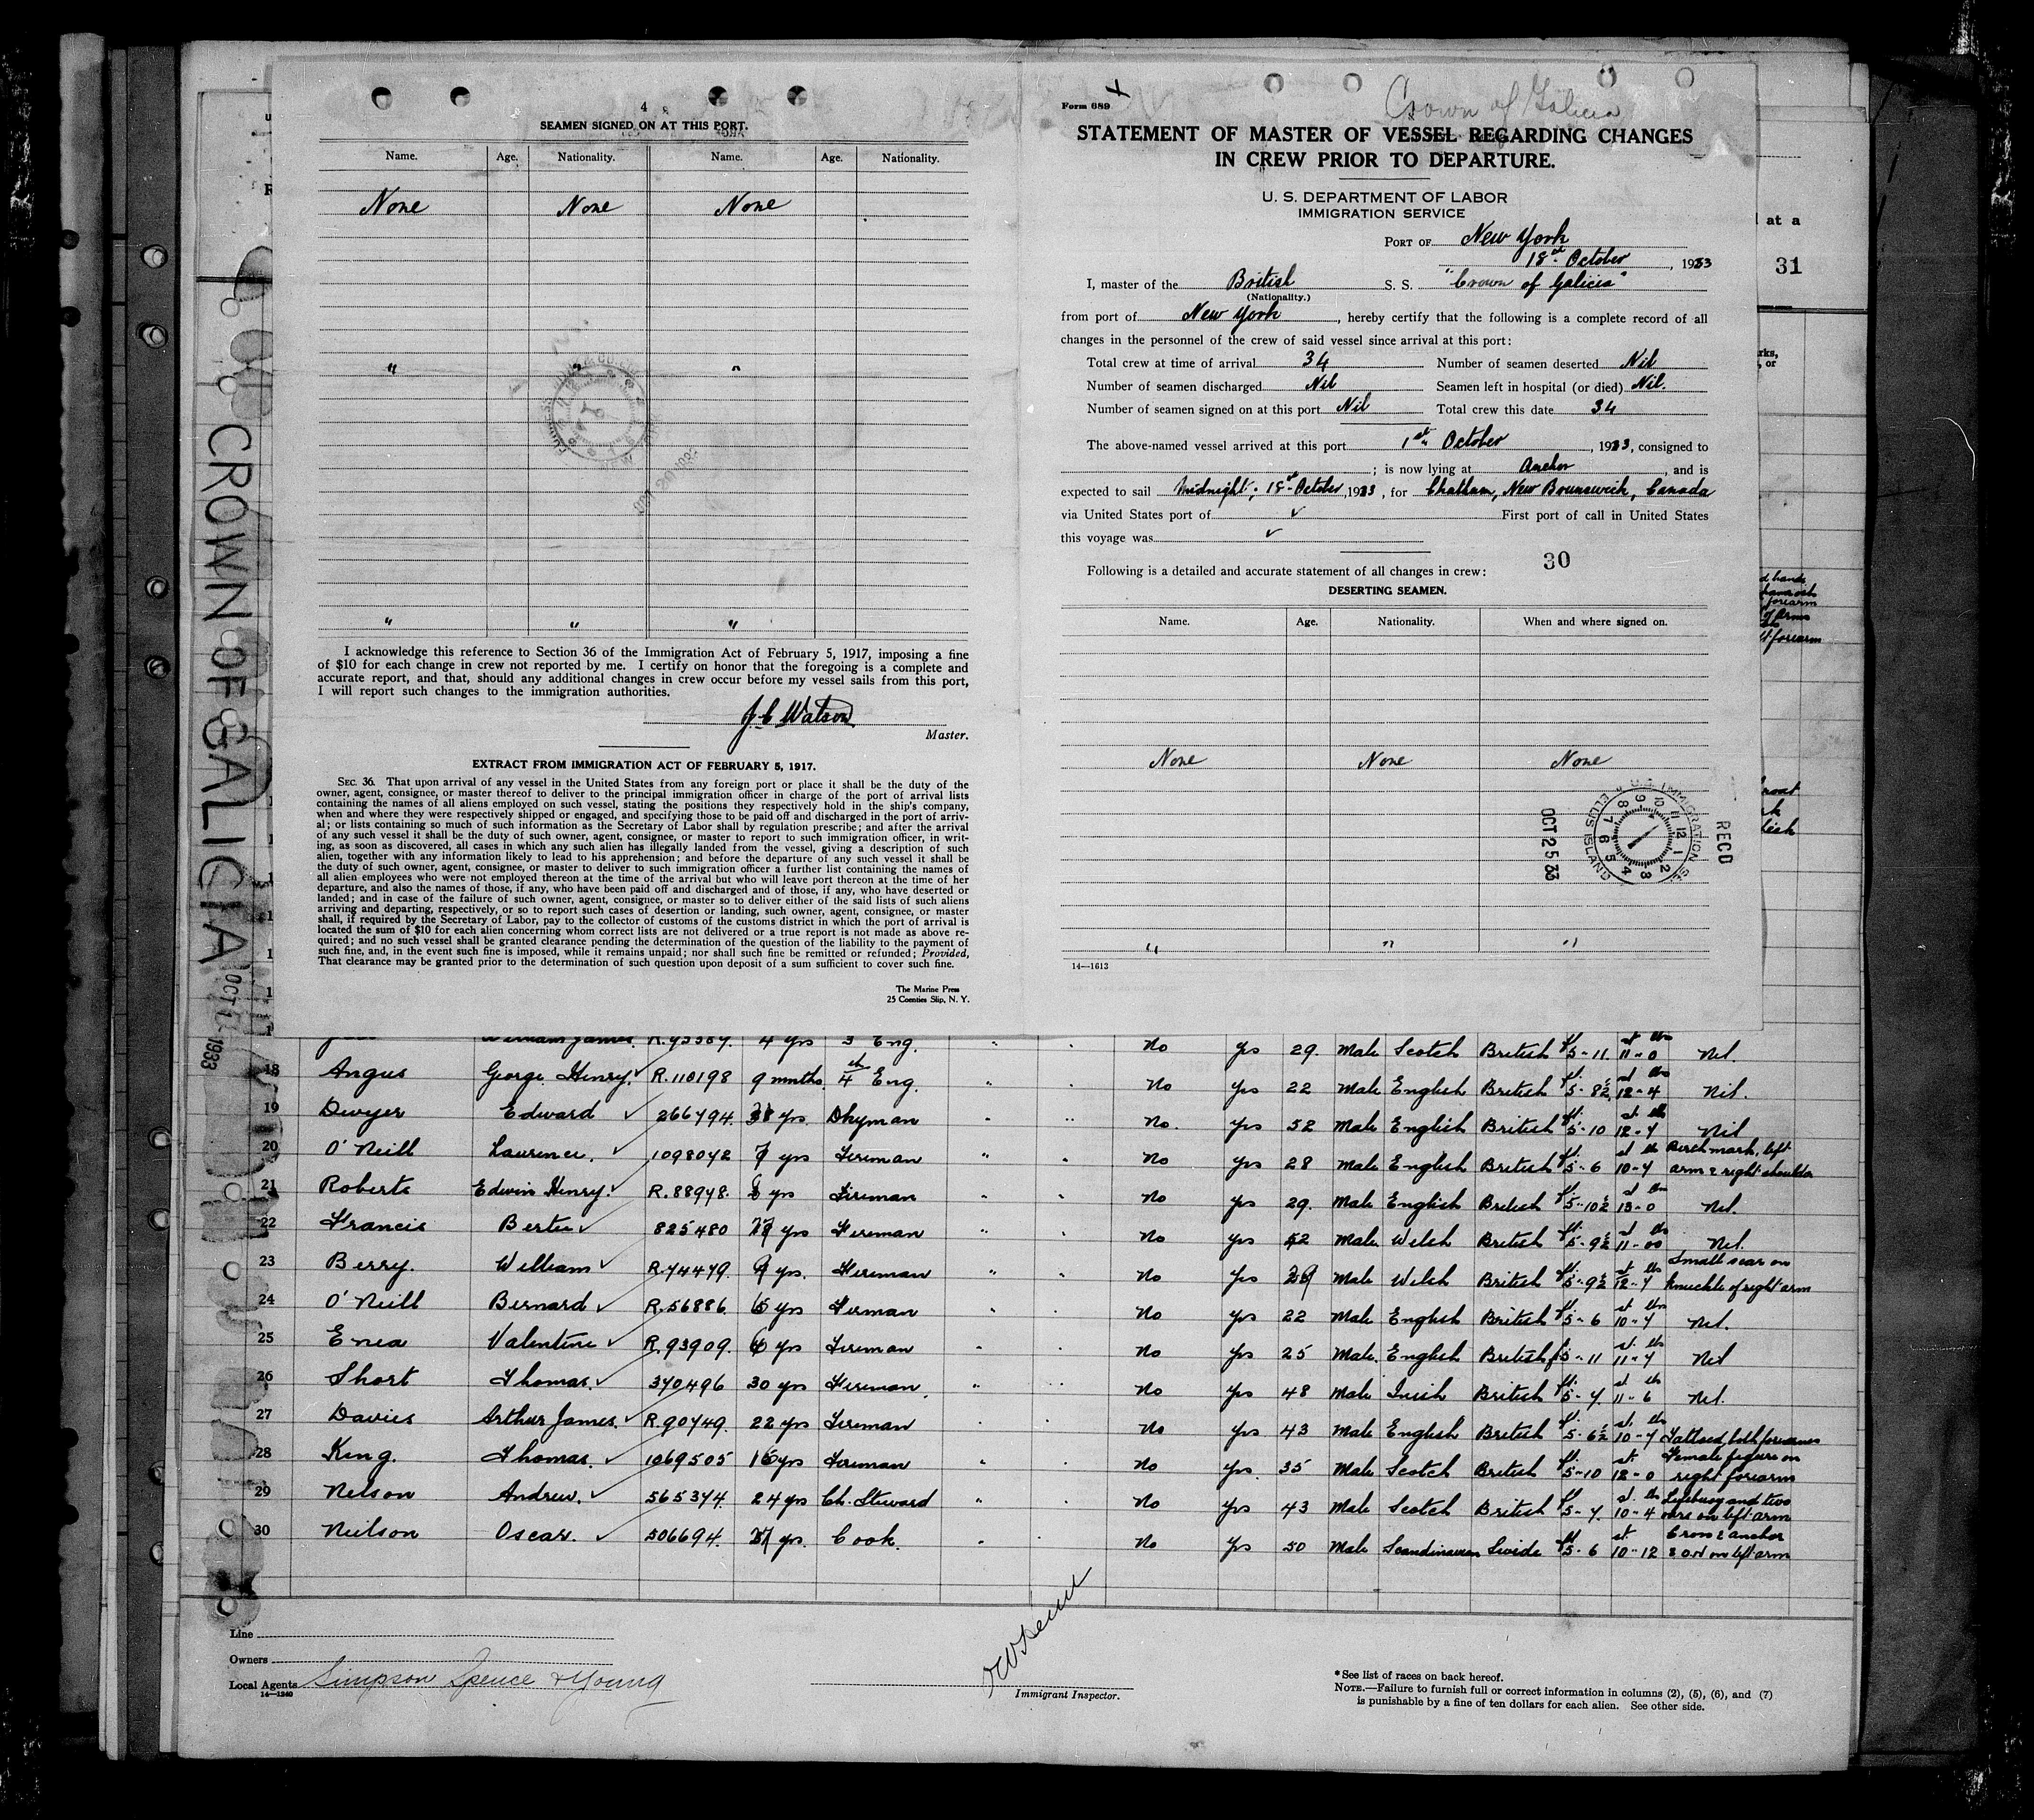 CROWN OF GALICIA
OCT 1 - 1933
4
SEAMEN SIGNED ON AT THIS PORT.
Name. Age. Nationality. Name. Age. Nationality.
None None None
" " "
" " "
I acknowledge this reference to Section 36 of the Immigration Act of February 5, 1917, imposing a fine
of $10 for each change in crew not reported by me. I certify on honor that the foregoing is a complete and
accurate report, and that, should any additional changes in crew occur before my vessel sails from this port,
I will report such changes to the immigration authorities.
J. C Watson
Master.
EXTRACT FROM IMMIGRATION ACT OF FEBRUARY 5, 1917.
SEC. 36. That upon arrival of any vessel in the United States from any foreign port or place it shall be the duty of the
owner, agent, consignee, or master thereof to deliver to the principal immigration officer in charge of the port of arrival lists
containing the names of all aliens employed on such vessel, stating the positions they respectively hold in the ship's company,
when and where they were respectively shipped or engaged, and specifying those to be paid off and discharged in the port of arriv-
al; or lists containing so much of such information as the Secretary of Labor shall by regulation prescribe; and after the arrival
of any such vessel it shall be the duty of such owner, agent, consignee, or master to report to such immigration officer, in writ-
ing, as soon as discovered, all cases in which any such alien has illegally landed from the vessel, giving a description of such
alien, together with any information likely to lead to his apprehension; and before the departure of any such vessel it shall be
the duty of such owner, agent, consignee, or master to deliver to such immigration officer a further list containing the names of
all alien employees who were not employed thereon at the time of the arrival but who will leave port thereon at the time of her
departure, and also the names of those, if any, who have been paid off and discharged and of those, if any, who have deserted or
landed; and in case of the failure of such owner, agent, consignee, or master so to deliver either of the said lists of such aliens
arriving and departing, respectively, or so to report such cases of desertion or landing, such owner, agent, consignee, or master
shall, if required by the Secretary of Labor, pay to the collector of customs of the customs district in which the port of arrival is
located the sum of $10 for each alien concerning whom correct lists are not delivered or a true report is not made as above re-
quired; and no such vessel shall be granted clearance pending the determination of the question of the liability to the payment of
such fine, and, in the event such fine is imposed, while it remains unpaid; nor shall such fine be remitted or refunded; Provided,
That clearance may be granted prior to the determination of such question upon deposit of a sum sufficient to cover such fine.
The Marine Press
25 Coenties Slip, N. Y.
Crown of Galicia
Form 689
STATEMENT OF MASTER OF VESSEL REGARDING CHANGES
IN CREW PRIOR TO DEPARTURE.
U. S. DEPARTMENT OF LABOR
IMMIGRATION SERVICE
PORT OF New York
18th October, 1933
I, master of the British S. S. "Crown of Galicia"
(Nationality.)
from port of New York, hereby certify that the following is a complete record of all
changes in the personnel of the crew of said vessel since arrival at this port:
Total crew at time of arrival 34 Number of seamen deserted Nil
Number of seamen discharged Nil Seamen left in hospital (or died) Nil.
Number of seamen signed on at this port Nil Total crew this date 34
The above-named vessel arrived at this port 1st October, 1933, consigned to
; is now lying at Anchor, and is
expected to sail Midnight; 18th October 1933, for Chatham, New Brunswick, Canada
via United States port of ✓ First port of call in United States
this voyage was ✓
30
Following is a detailed and accurate statement of all changes in crew:
DESERTING SEAMEN.
Name. Age. Nationality. When and where signed on.
None None None
" " "
14—1613
RECD
U.S. IMMIGRATION
ELLIS ISLAND
OCT 25 33
at a
31
d hands
forearm
forearm
William James. R.93369. 4 yrs 3 Eng. " " No yes 29. Male Scotch British ft. 5-11 st lbs 11-0 Nil.
18 Angus George Henry. ✓ R.110198 9 mnths. 4th Eng. " " No yes 22 Male English British ft. 5-8½ st lbs 12-4 Nil.
19 Dwyer Edward ✓ 266794. yrs. Dkyman " " No. yes 52 Male English British ft. 5-10 st lbs 12-7 Nil
20 O'Neill Laurence. ✓ 1098042 7 yrs Fireman " " No yes 28 Male English British ft. 5-6 st lbs 10-7 Birch mark, left arm & right shoulder
21 Roberts Edwin Henry. ✓ R.88948. yrs Fireman " " No yes 29. Male English British ft. 5-10½ st lbs 13-0 Nil.
22 Francis Bertie ✓ 825480 yrs Fireman " " No yes 52 Male Welsh British ft. 5-9½ st lbs 11-00 Nil.
23 Berry. William ✓ R.74479. 9 yrs. Fireman " " No Yes 29 Male Welsh British ft. 5-9½ st lbs 12-7 Small scar on knuckle of right arm
24 O'Neill Bernard ✓ R.56886. 5 yrs Firman " " No yes 22 Male English British ft. 5-6 st lbs 10-7 Nil.
25 Enea Valentine ✓ R.93909. yrs Fireman " " No yes 25 Male. English British ft. 5-11 st. lbs 11-7 Nil
26 Short Thomas. ✓ 370496 30 yrs Fireman. " " No yes 48 Male Irish British ft. 5-7. st lbs 11-6 Nil.
27 Davies Arthur James. ✓ R.90749. 22 yrs Fireman " " No yes 43 Male English British ft. 5-6½ st. lbs 10-7 Tattooed both forearms
28 King. Thomas. ✓ 1069505 16 yrs Fireman " " No yes. 35 Male Scotch British ft. 5-10 st. 12-0 Female figure on right forearm
29 Nelson Andrew. ✓ 565374. 24 yrs Ch. Steward " " No yes 43 Male Scotch British ft. 5-7. st. lbs 10-4 Lifebuoy and two oars on left arm
30 Neilson Oscar. ✓ 506694. yrs. Cook. " " No yes 50 Male Scandinavian Swide ft. 5-6 st. 10-12 Cross & anchor & O.N on left arm
Line
Owners
Local Agents Simpson Spence & Young
14—1240
Immigrant Inspector.
* See list of races on back hereof.
NOTE.—Failure to furnish full or correct information in columns (2), (5), (6), and (7)
is punishable by a fine of ten dollars for each alien. See other side.